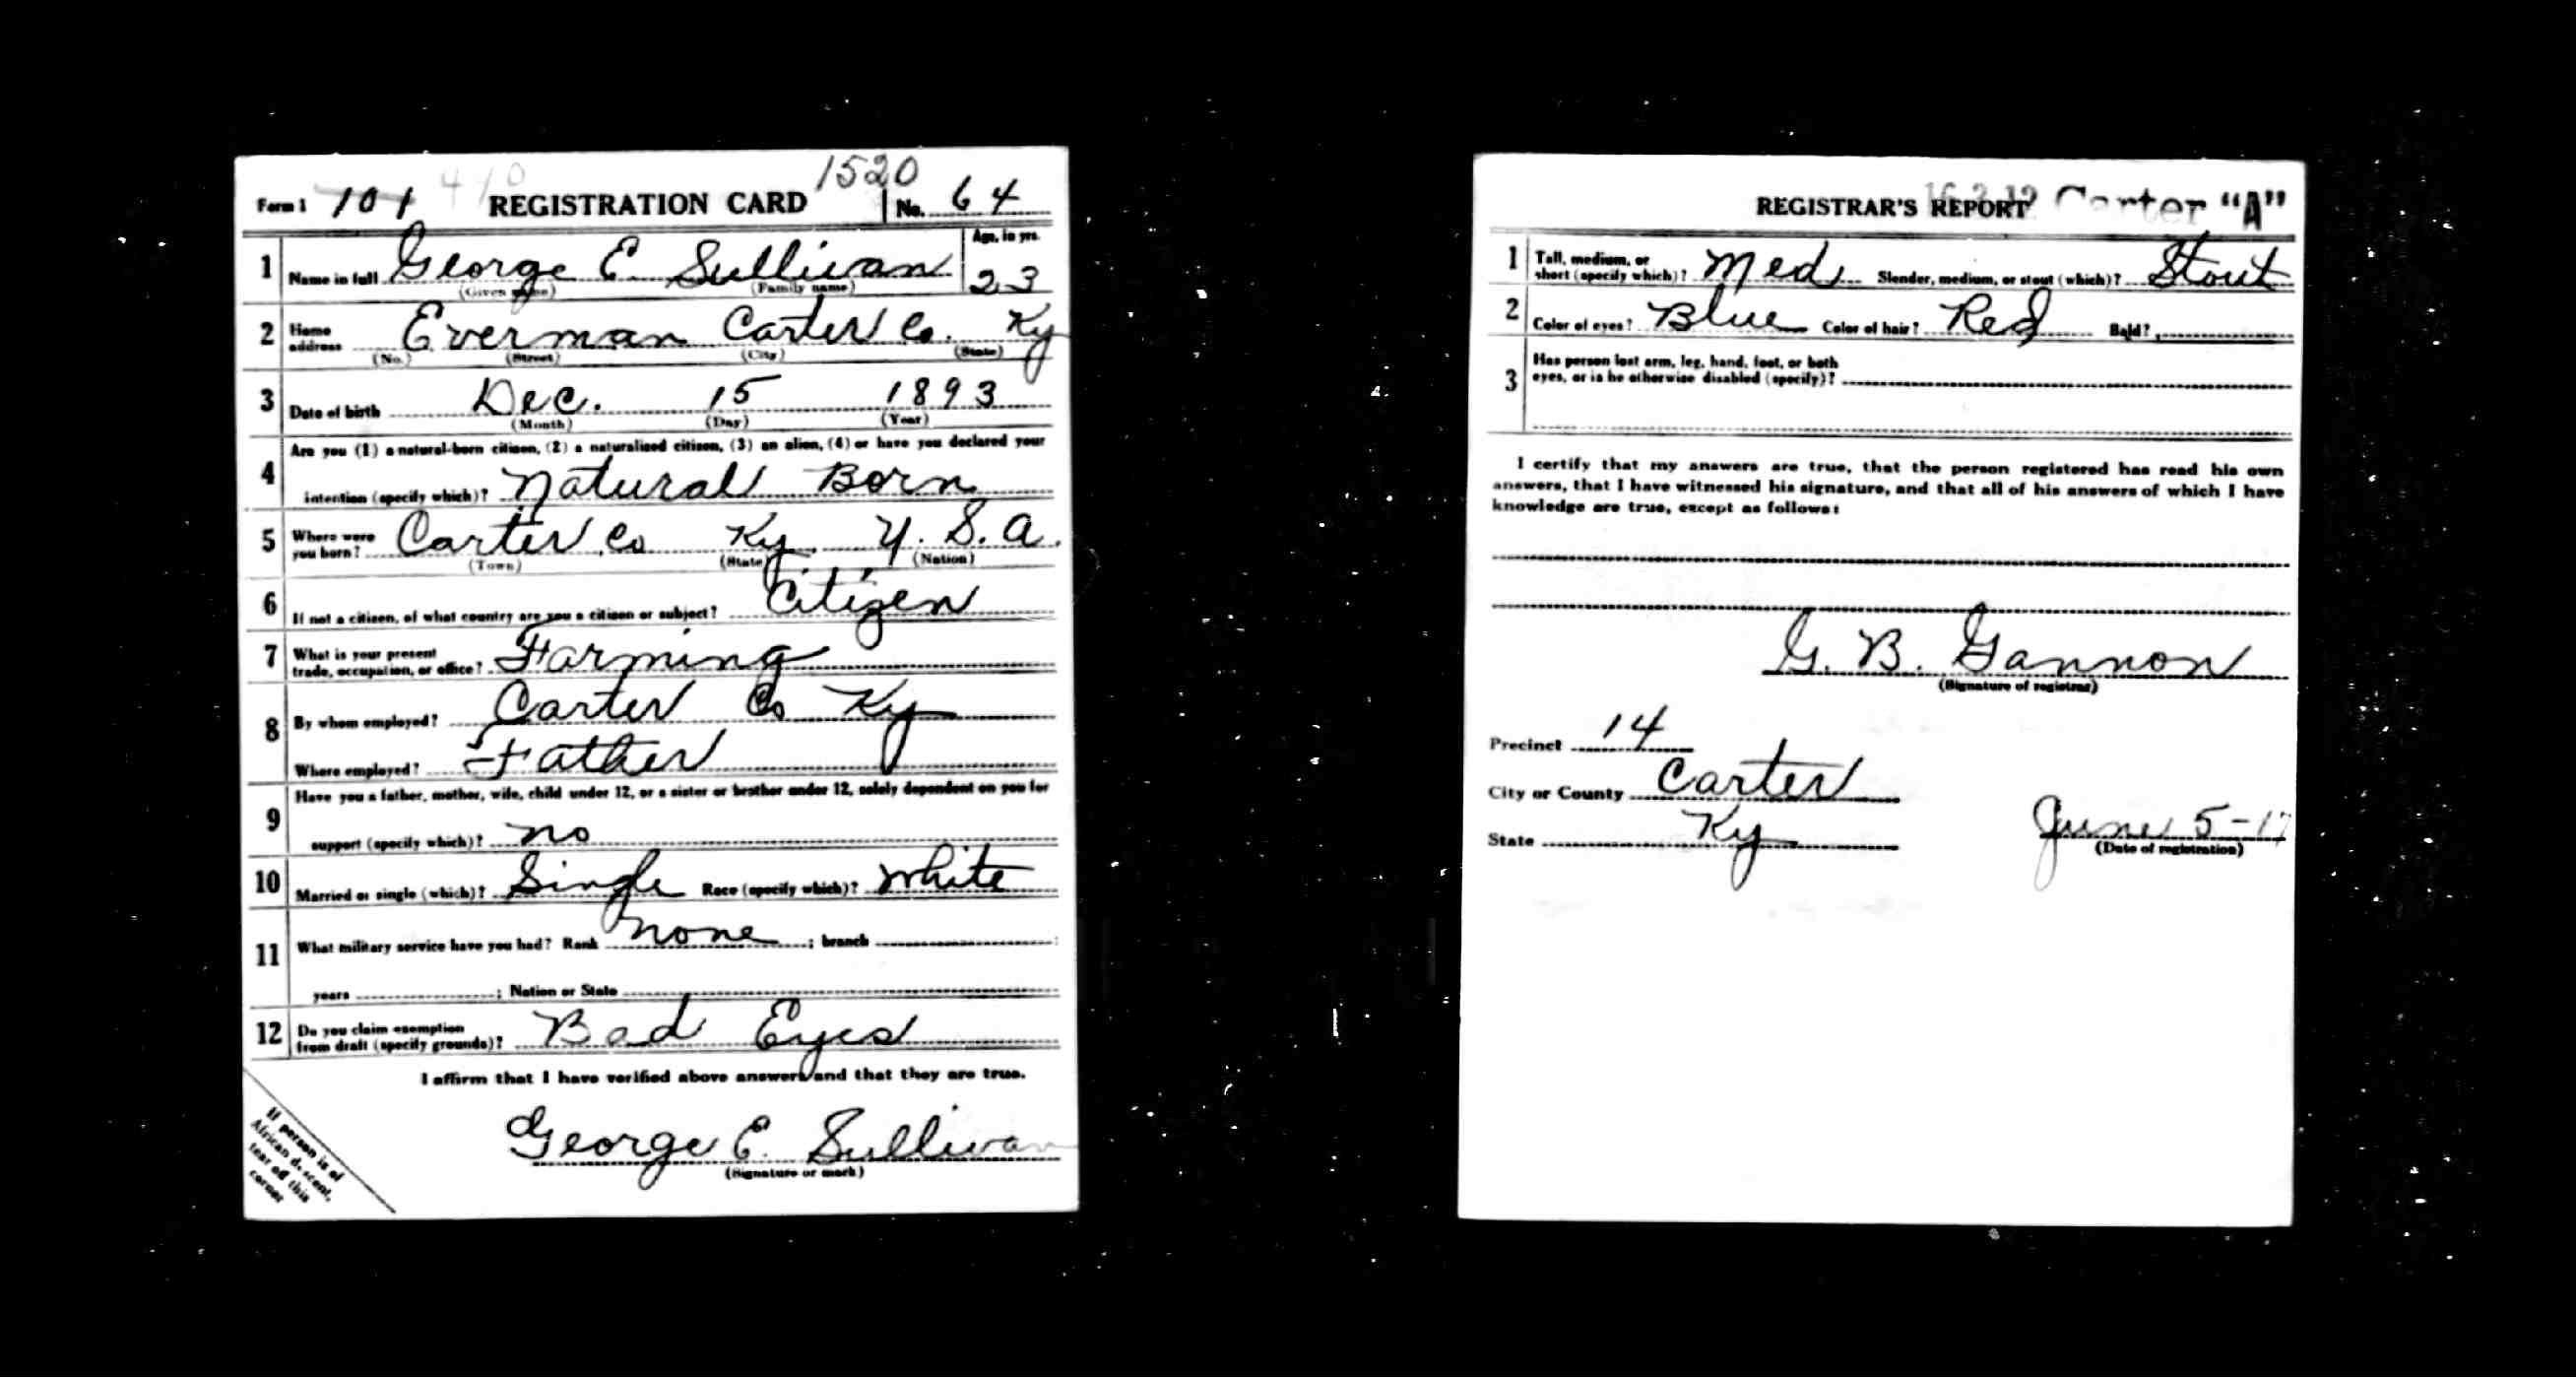 1520
Form 1 101 410 REGISTRATION CARD No. 64
1 Name in full George E. Sullivan Age, in yrs. 23
(Given name) (Family name)
2 Home address Everman Carter Co. Ky
(No.) (Street) (City) (State)
3 Date of birth Dec. 15 1893
(Month) (Day) (Year)
4 Are you (1) a natural-born citizen, (2) a naturalized citizen, (3) an alien, (4) or have you declared your
intention (specify which)? Natural Born
5 Where were you born? Carter Co Ky U. S. A.
(Town) (State) (Nation)
6 If not a citizen, of what country are you a citizen or subject? Citizen
7 What is your present trade, occupation, or office? Farming
8 By whom employed? Carter Co Ky
Where employed? Father
9 Have you a father, mother, wife, child under 12, or a sister or brother under 12, solely dependent on you for
support (specify which)? no
10 Married or single (which)? Single Race (specify which)? White
11 What military service have you had? Rank none ; branch
years ; Nation or State
12 Do you claim exemption from draft (specify grounds)? Bad Eyes
I affirm that I have verified above answers and that they are true.
George E. Sullivan
(Signature or mark)
If person is of
African descent,
tear off this
corner
REGISTRAR'S REPORT Carter "A"
1 Tall, medium, or short (specify which)? Med Slender, medium, or stout (which)? Stout
2 Color of eyes? Blue Color of hair? Red Bald?
3 Has person lost arm, leg, hand, foot, or both
eyes, or is he otherwise disabled (specify)?
I certify that my answers are true, that the person registered has read his own
answers, that I have witnessed his signature, and that all of his answers of which I have
knowledge are true, except as follows:
G. B. Gannon
(Signature of registrar)
Precinct 14
City or County Carter
State Ky June 5-17
(Date of registration)